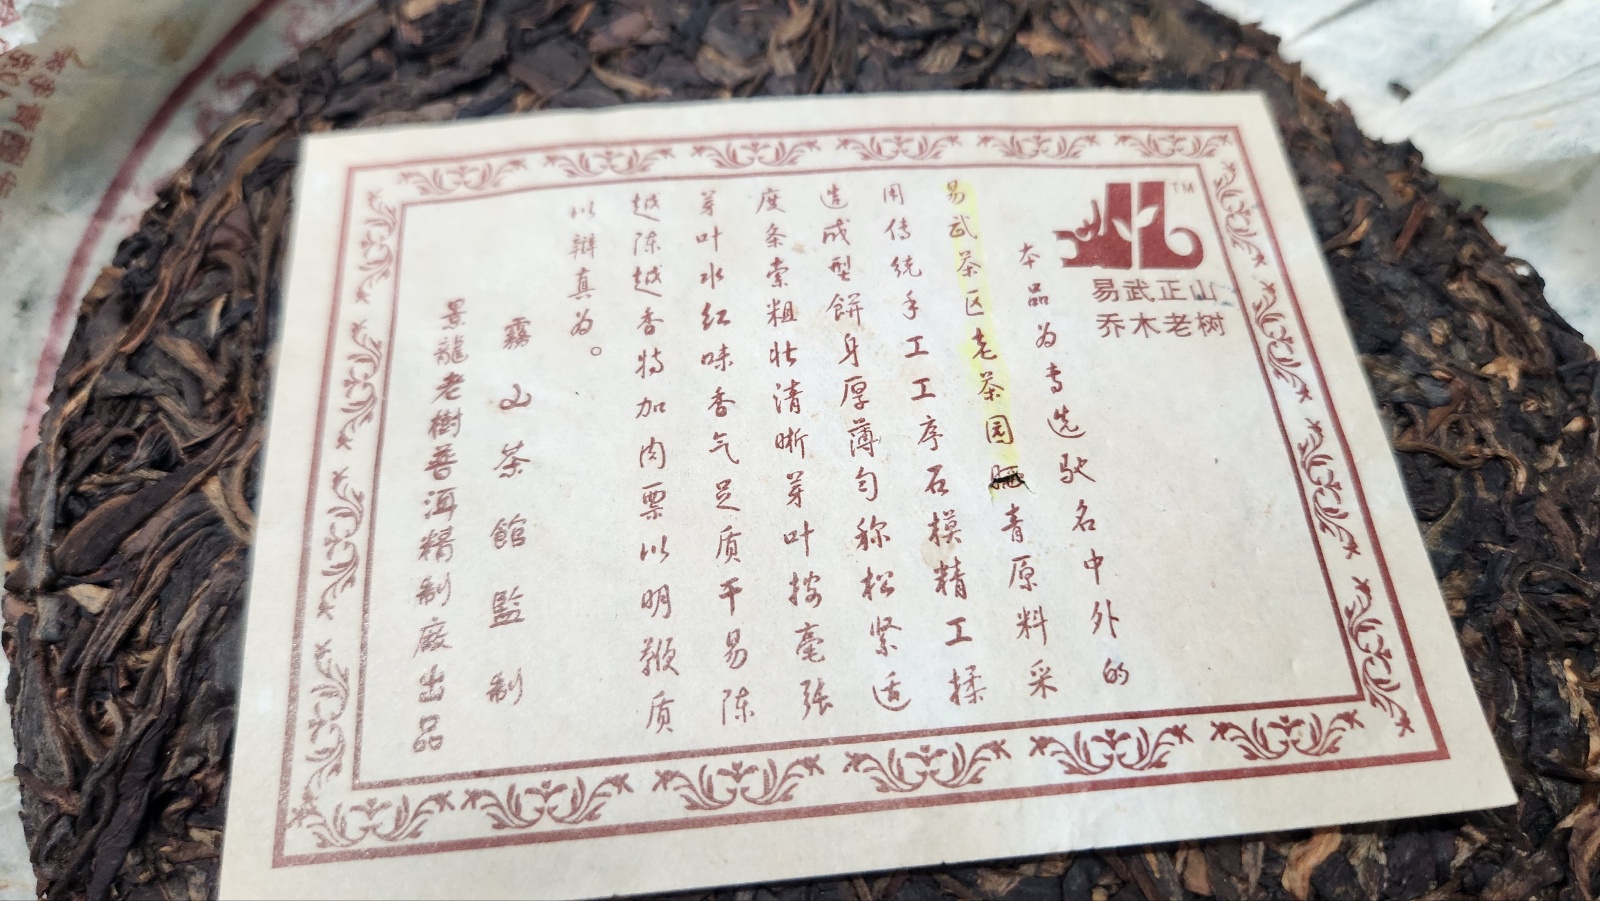 TM
易武正山
乔木老树
本品为专选驰名中外的
易武茶区老茶园晒青原料采
用传统手工工序石模精工揉
造成型餅身厚薄匀称松紧适
度条索粗壮清晰芽叶披毫张
芽叶水红味香气足质干易陈
越陈越香特加内票以明鞭质
以辩真为。
霧山茶館監制
景龍老樹普洱精制廠出品